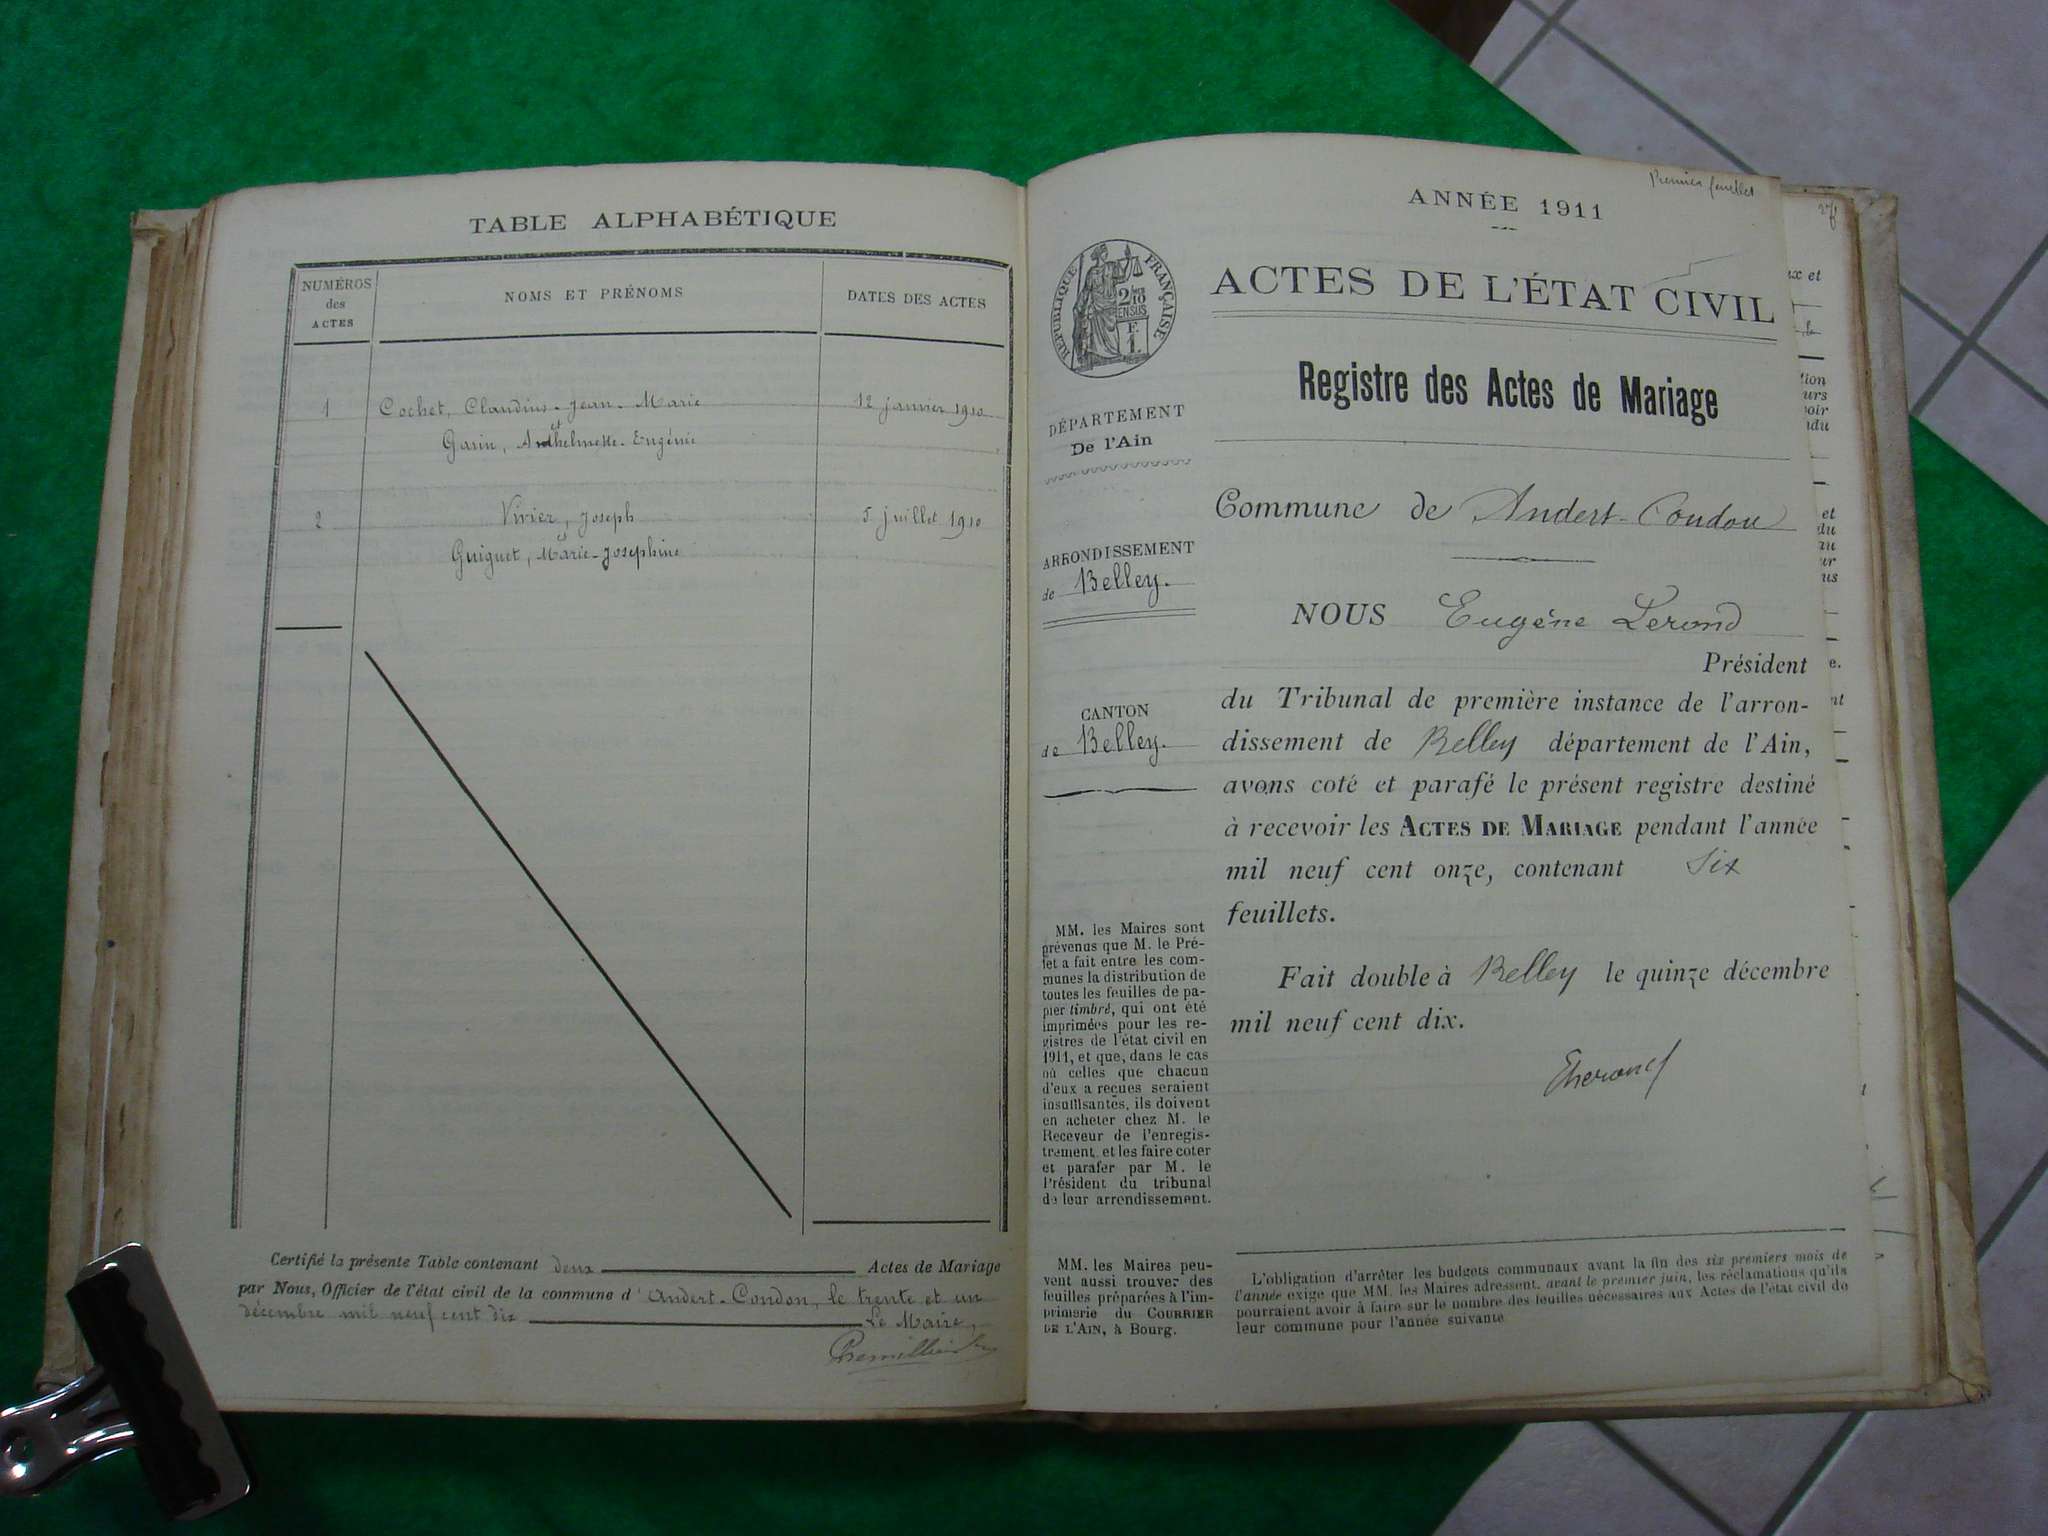 TABLE ALPHABÉTIQUE
NUMÉROS
des
ACTES
NOMS ET PRÉNOMS
DATES DES ACTES
1
Cochet, Claudius-Jean-Marie
12 janvier 1910
et
Garin, Anthelmette-Eugénie
2
Vivier, Joseph
5 juillet 1910
et
Guiguet, Marie-Josephine
Certifié la présente Table contenant deux Actes de Mariage
par Nous, Officier de l'état civil de la commune d'Andert-Condon, le trente et un
décembre mil neuf cent dix Le Maire,
Premier feuillet
ANNÉE 1911
RÉPUBLIQUE FRANÇAISE
2/10
EN SUS
F.
1.
ACTES DE L'ÉTAT CIVIL
Registre des Actes de Mariage
DÉPARTEMENT
De l'Ain
Commune de Andert-Condon
ARRONDISSEMENT
de Belley.
NOUS Eugène Lerond
Président
CANTON
de Belley.
du Tribunal de première instance de l'arron-
dissement de Belley département de l'Ain,
avons coté et parafé le présent registre destiné
à recevoir les ACTES DE MARIAGE pendant l'année
mil neuf cent onze, contenant Six
feuillets.
Fait double à Belley le quinze décembre
mil neuf cent dix.
ELerond
MM. les Maires sont
prévenus que M. le Pré-
fet a fait entre les com-
munes la distribution de
toutes les feuilles de pa-
pier timbré, qui ont été
imprimées pour les re-
gistres de l'état civil en
1911, et que, dans le cas
où celles que chacun
d'eux a reçues seraient
insuffisantes, ils doivent
en acheter chez M. le
Receveur de l'enregis-
trement et les faire coter
et parafer par M. le
Président du tribunal
de leur arrondissement.
MM. les Maires peu-
vent aussi trouver des
feuilles préparées à l'im-
primerie du COURRIER
DE L'AIN, à Bourg.
L'obligation d'arrêter les budgets communaux avant la fin des six premiers mois de
l'année exige que MM. les Maires adressent, avant le premier juin, les réclamations qu'ils
pourraient avoir à faire sur le nombre des feuilles nécessaires aux Actes de l'état civil de
leur commune pour l'année suivante